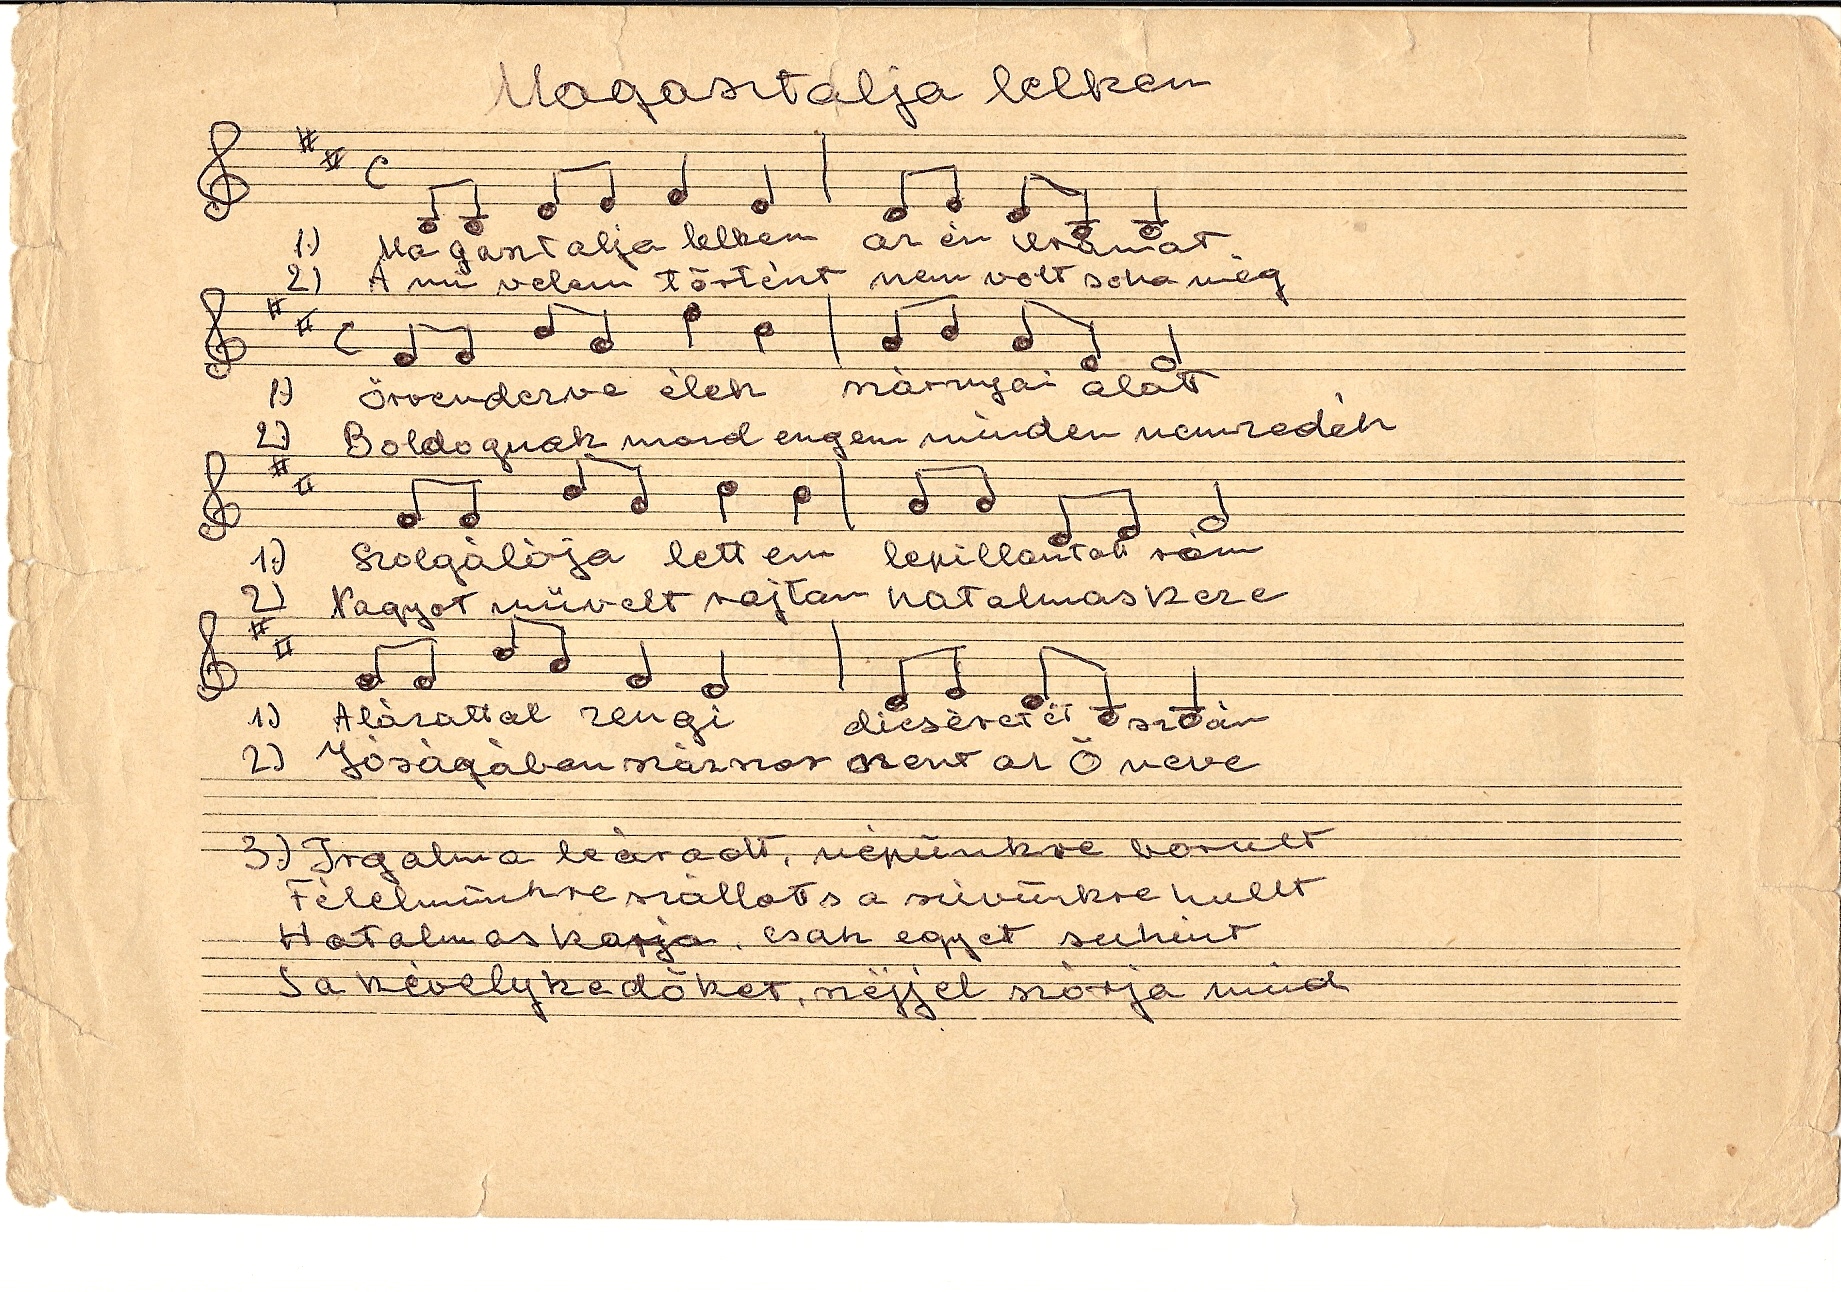 Magasztalja lelkem
1.) Magasztalja lelkem az én Uramat
2) A mi velem történt nem volt soha még
1) Örvendezve élek szárnyai alatt
2.) Boldognak mond engem minden nemzedék
1.) Szolgálója lettem lepillantott rám
2) Nagyot művelt rajtam hatalmas keze
1.) Alázattal zengi dicséretét szám
2.) Jóságában szent az Ő neve
3.) Irgalma leáradt, népünkre borult
Félelmünkre szállott s a szívünkre hullt
Hatalmas karja, csak egyet suhint
S a kevélykedőket, széjjel szórja mind